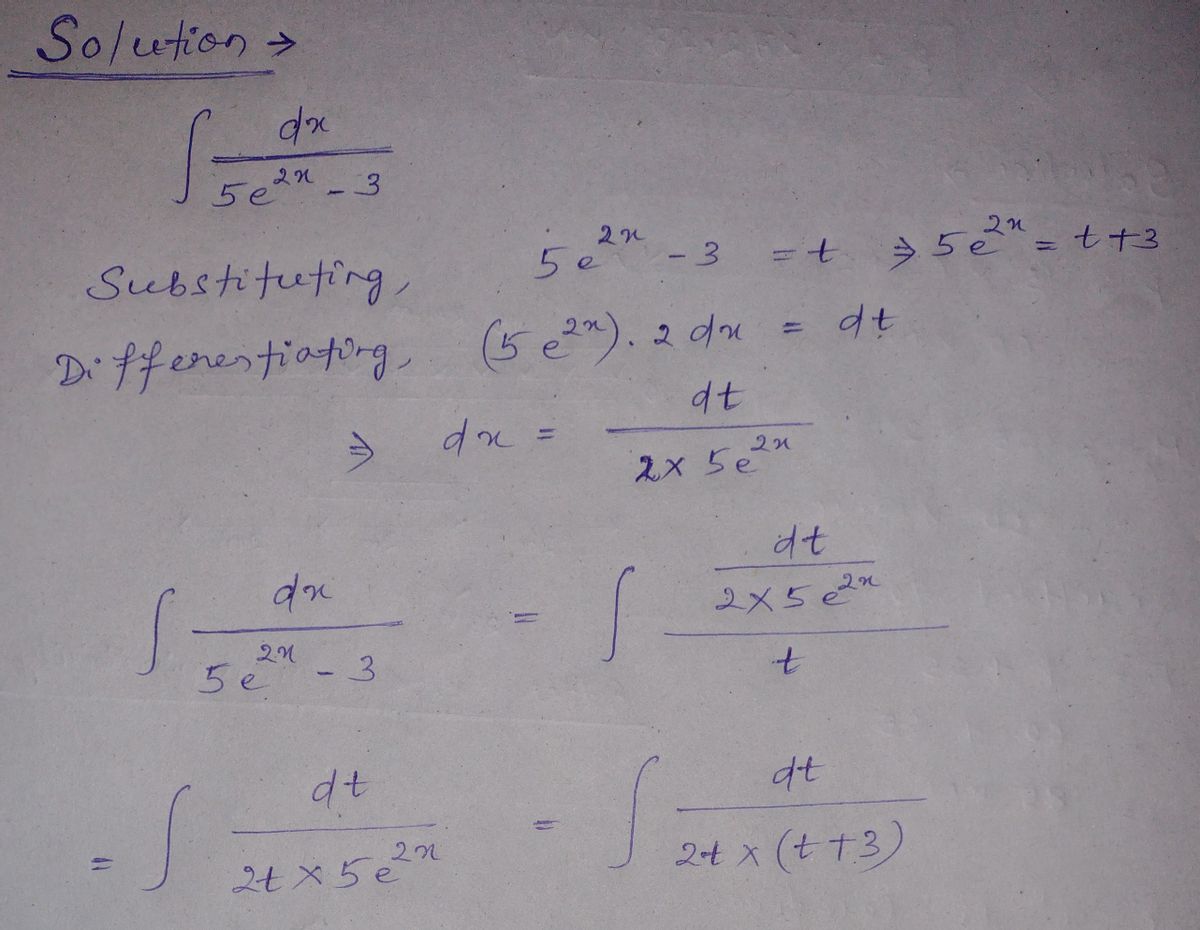 Solution →
∫ dx / (5e^{2x} - 3)
Substituting, 5e^{2x} - 3 = t ⇒ 5e^{2x} = t+3
Differentiating, (5e^{2x}). 2 dx = dt
⇒ dx = dt / (2× 5e^{2x})
∫ dx / (5e^{2x} - 3) = ∫ (dt / (2×5e^{2x})) / t
= ∫ dt / (2t × 5e^{2x}) = ∫ dt / (2t × (t+3))